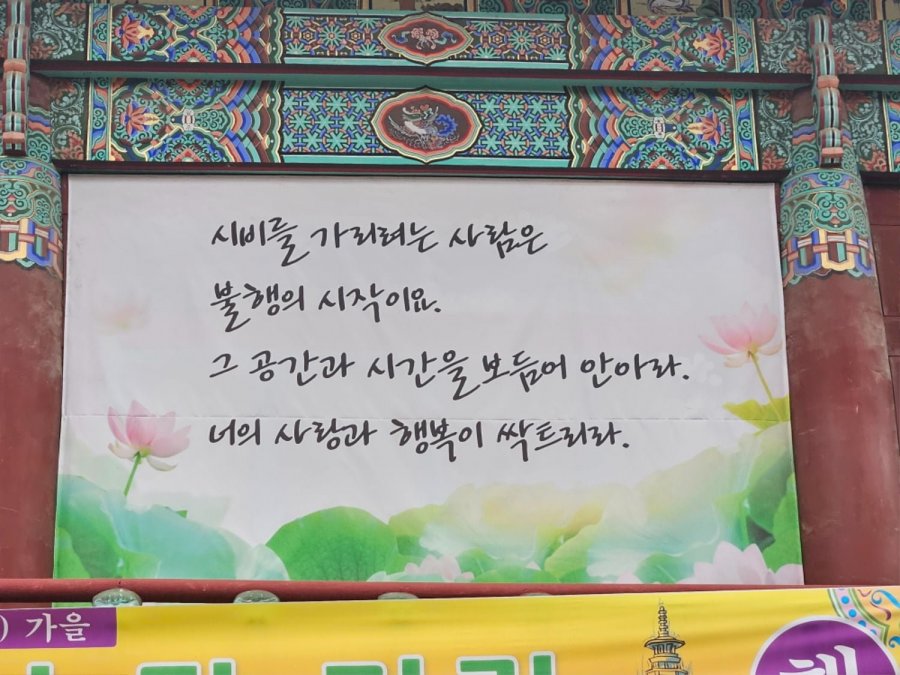 시비를 가리려는 사람은
불행의 시작이요.
그 공간과 시간을 보듬어 안아라.
너의 사랑과 행복이 싹트리라.
) 가을